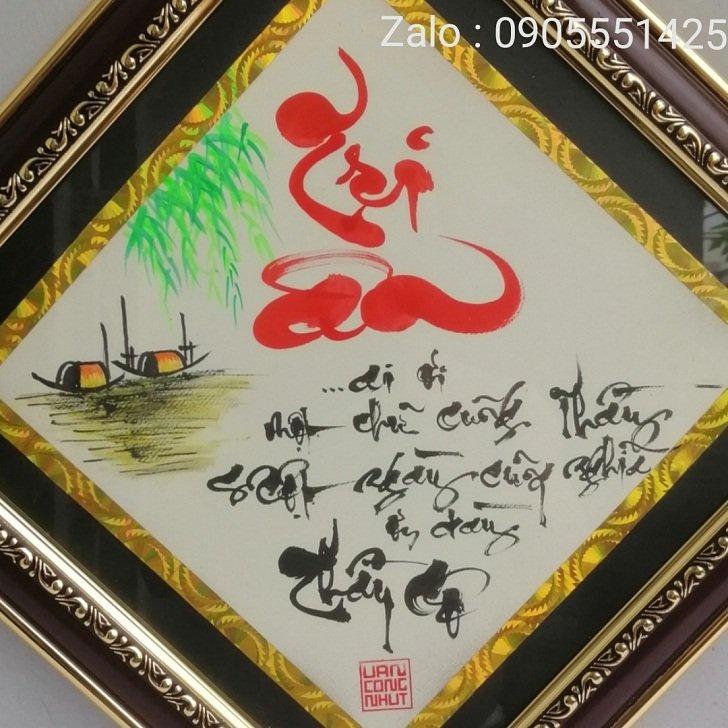 Zalo : 0905551425
Tri
ân
...ai ơi
một chữ cũng thầy
một ngày cũng nghĩa
ơn
Thầy Cô
VAN
CONG
NHUT